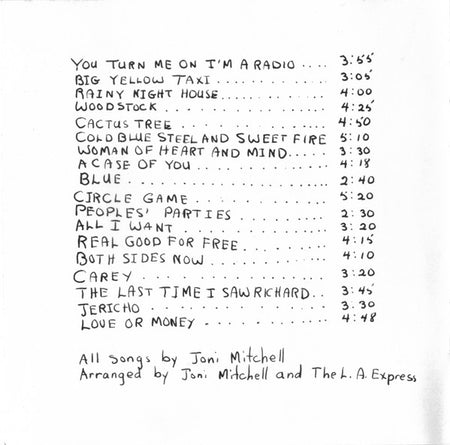 YOU TURN ME ON I'M A RADIO .... 3:55
BIG YELLOW TAXI .......... 3:05
RAINY NIGHT HOUSE .......... 4:00
WOODSTOCK ............... 4:25
CACTUS TREE .............. 4:50
COLD BLUE STEEL AND SWEET FIRE 5:10
WOMAN OF HEART AND MIND..... 3:30
A CASE OF YOU ............ 4:18
BLUE.................... 2:40
CIRCLE GAME ............ 5:20
PEOPLES' PARTIES ......... 2:30
ALL I WANT ............. 3:20
REAL GOOD FOR FREE......... 4:15
BOTH SIDES NOW .......... 4:10
CAREY ................. 3:20
THE LAST TIME I SAW RICHARD.. 3:45
JERICHO ............... 3.30
LOVE OR MONEY ........... 4:48
All Songs by Joni Mitchell
Arranged by Joni Mitchell and The L.A. Express